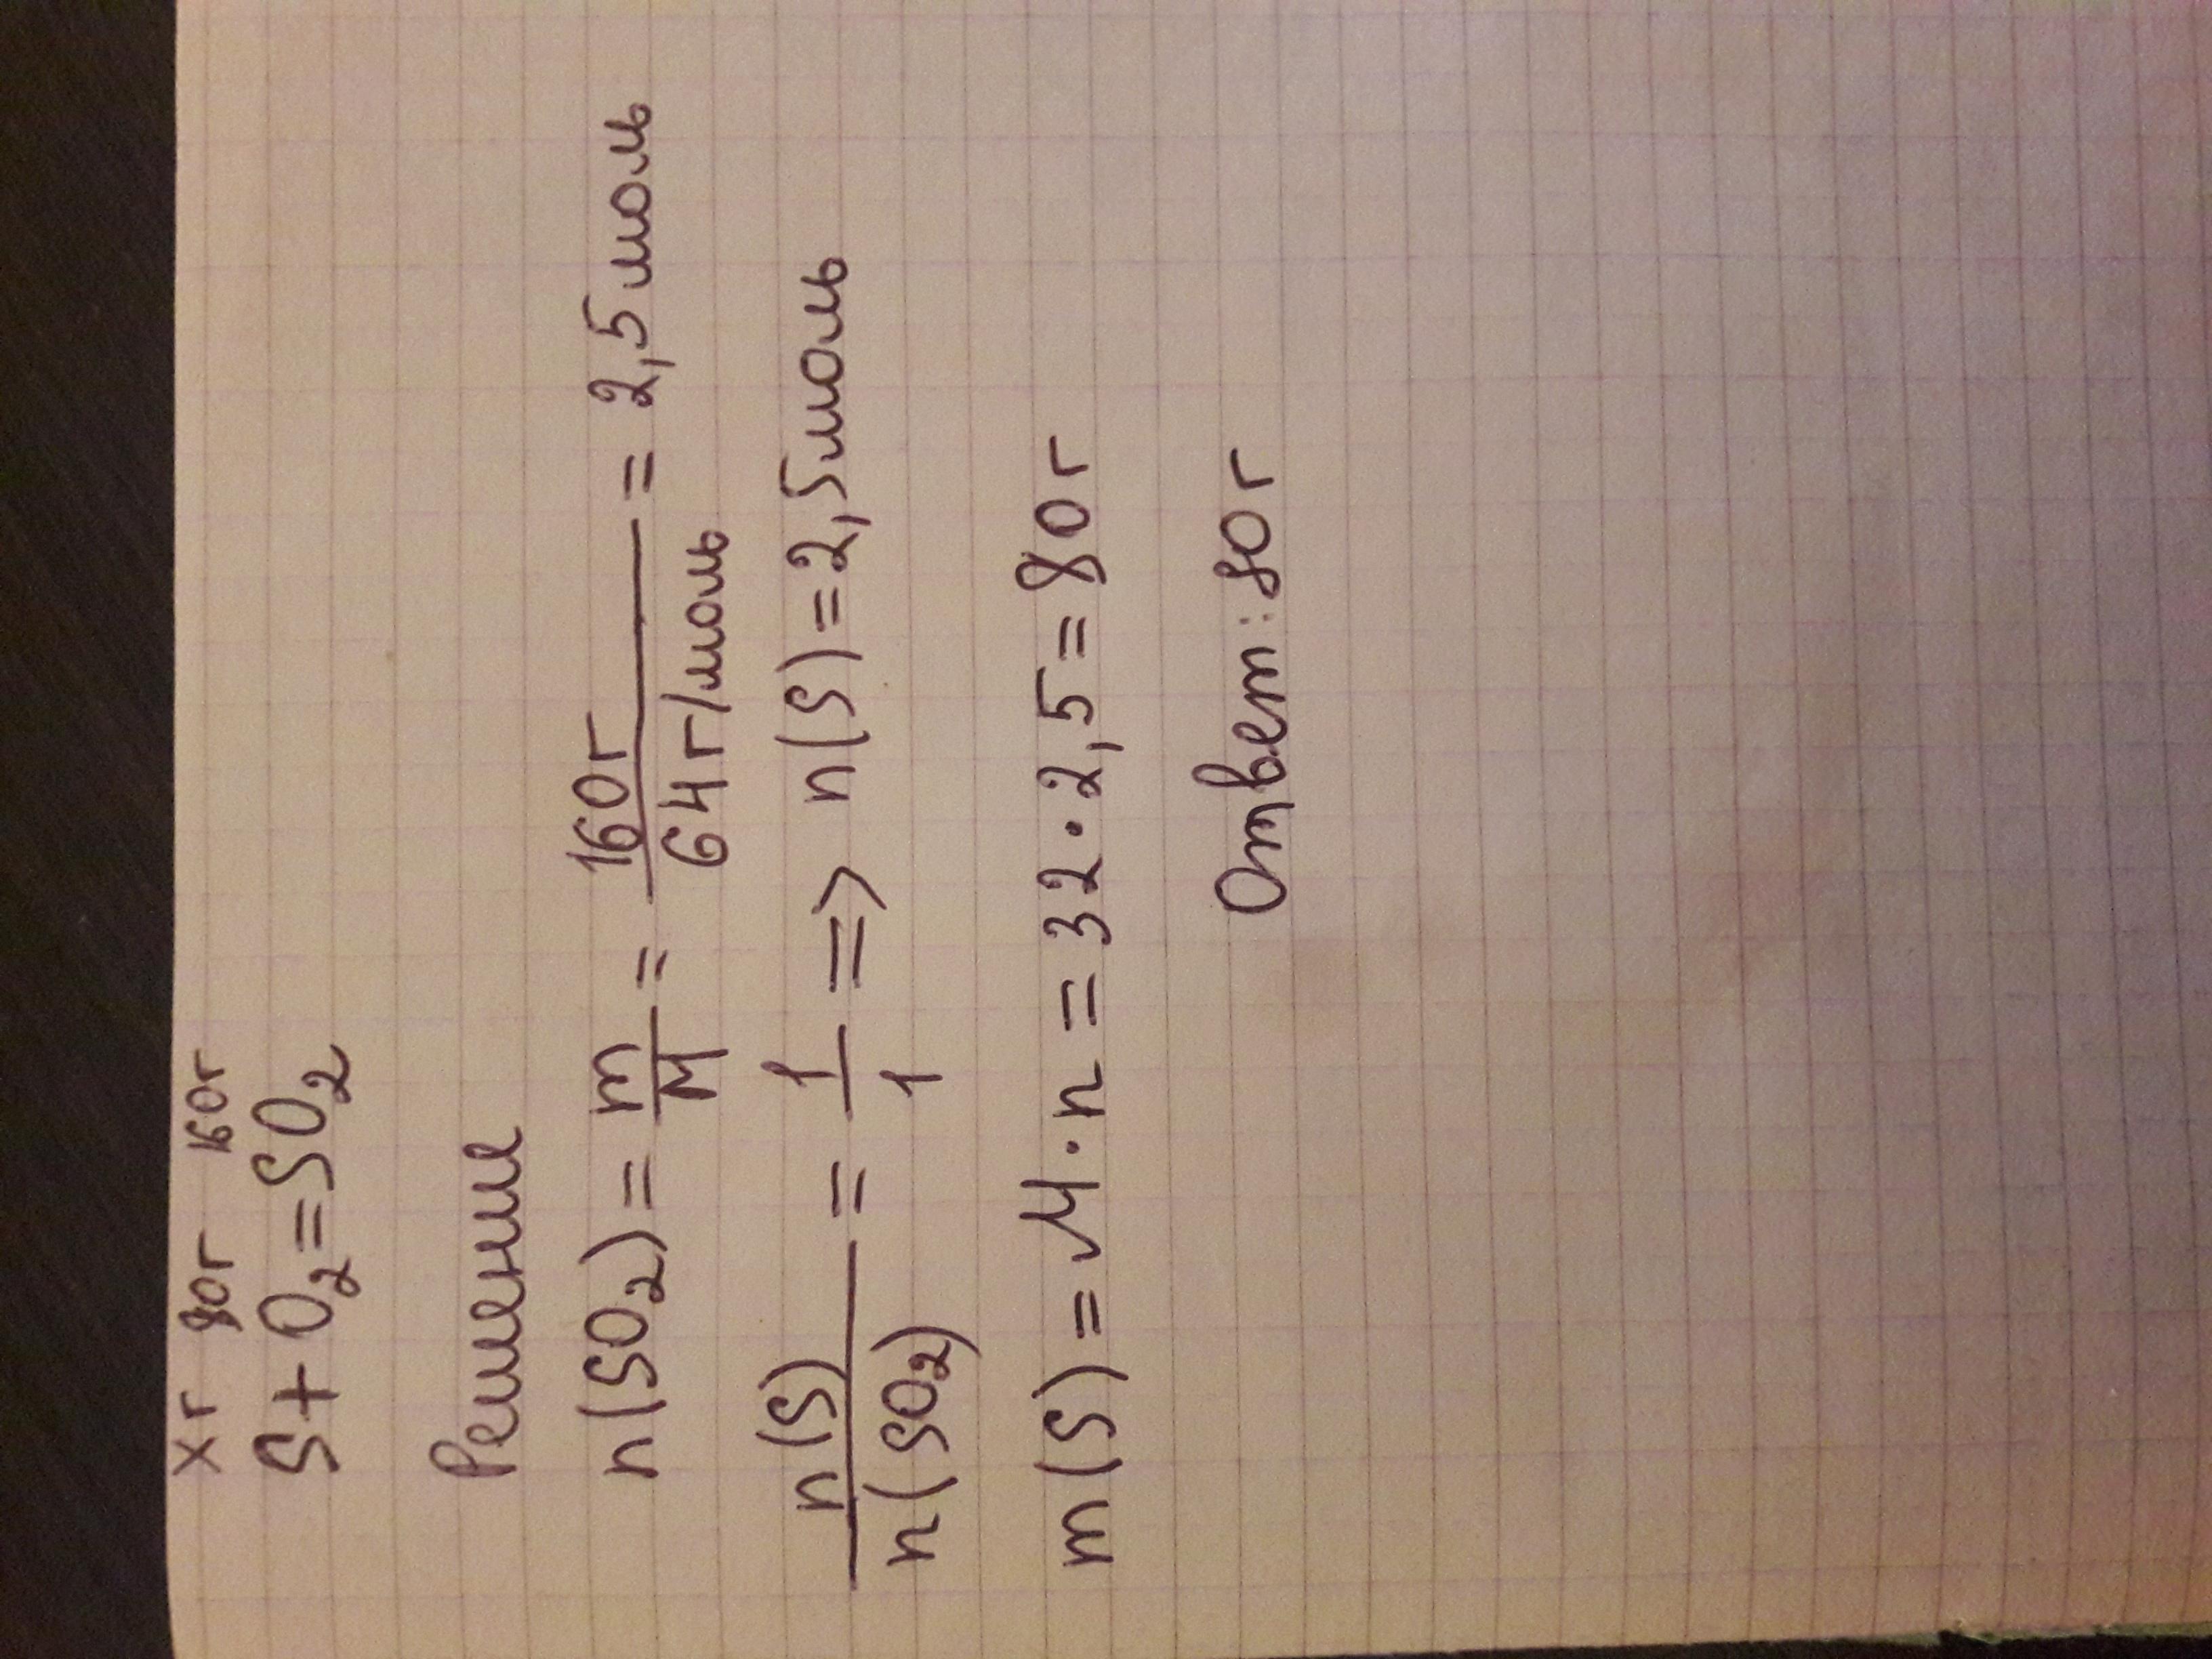 хг 80г 160г
S + O₂ = SO₂
Решение
n(SO₂) = m/M = 160г/64г/моль = 2,5моль
n(S)/n(SO₂) = 1/1 => n(S) = 2,5моль
m(S) = M · n = 32 · 2,5 = 80г
Ответ: 80г